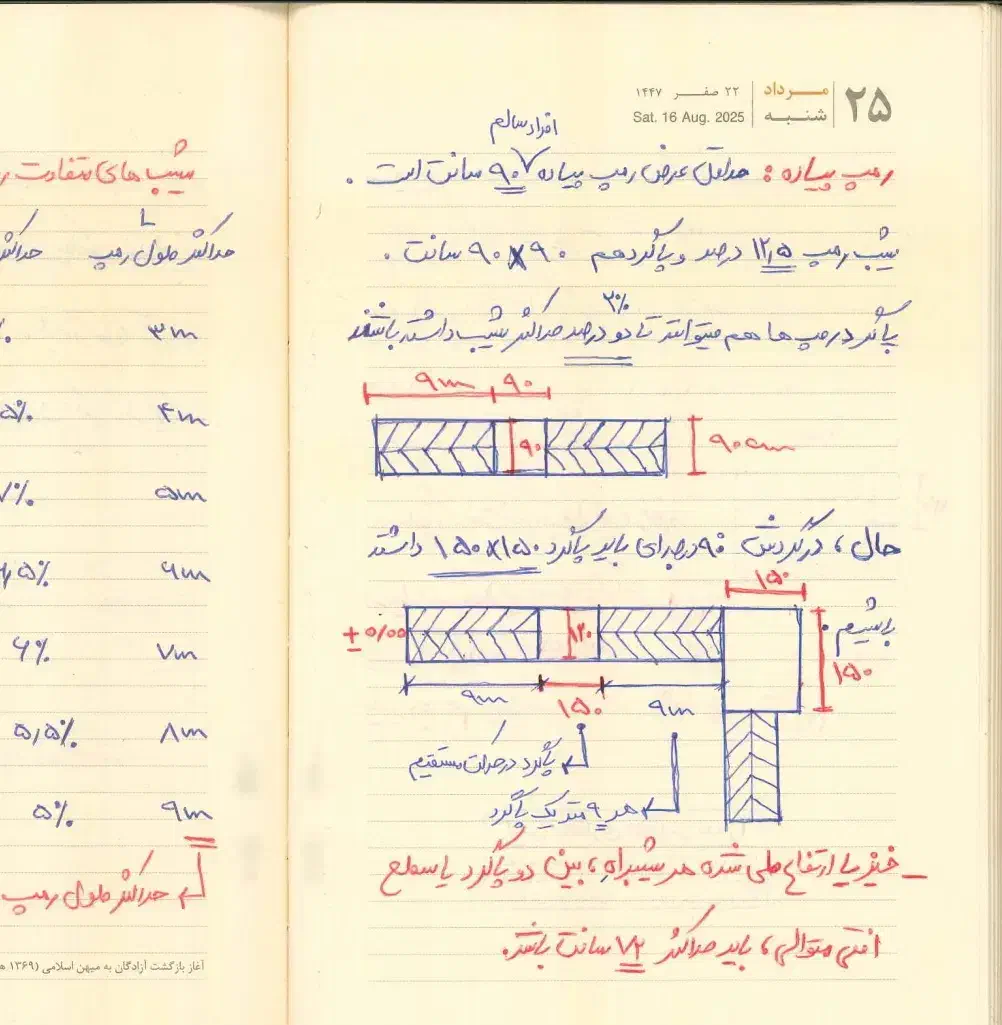 ۲۵
مرداد
شنبه
۲۲ صفر ۱۴۴۷
Sat. 16 Aug. 2025
افراد سالم
رمپ پیاده : حداقل عرض رمپ پیاده ۹۰ سانت است .
شیب رمپ ۱۲٫۵ درصد و پاگرد هم ۹۰x۹۰ سانت .
۲%
پاگرد رمپ ها هم میتوانند تا دو درصد حداکثر شیب داشته باشند
۹m ۹۰
۹۰ ۹۰cm
حال ، در گردش ۹۰ درجه‌ای باید پاگرد ۱۵۰x۱۵۰ داشته
باشیم .
۱۵۰
±0/00 ۱۲۰ ۱۵۰
۹m ۱۵۰ ۹m
پاگرد در حرکت مستقیم
هر ۹ متر یک پاگرد
_ خیز یا ارتفاع طی شده هر شیبراه ، بین دو پاگرد یا سطح
افقی متوالی ، باید حداکثر ۷۲ سانت باشد.
شیب های متفاوت
L
حداکثر طول رمپ
۳m
۴m
۵m
۶m
۷m ۶%
۸m ۵٫۵%
۹m ۵%
حداکثر طول رمپ
آغاز بازگشت آزادگان به میهن اسلامی (۱۳۶۹